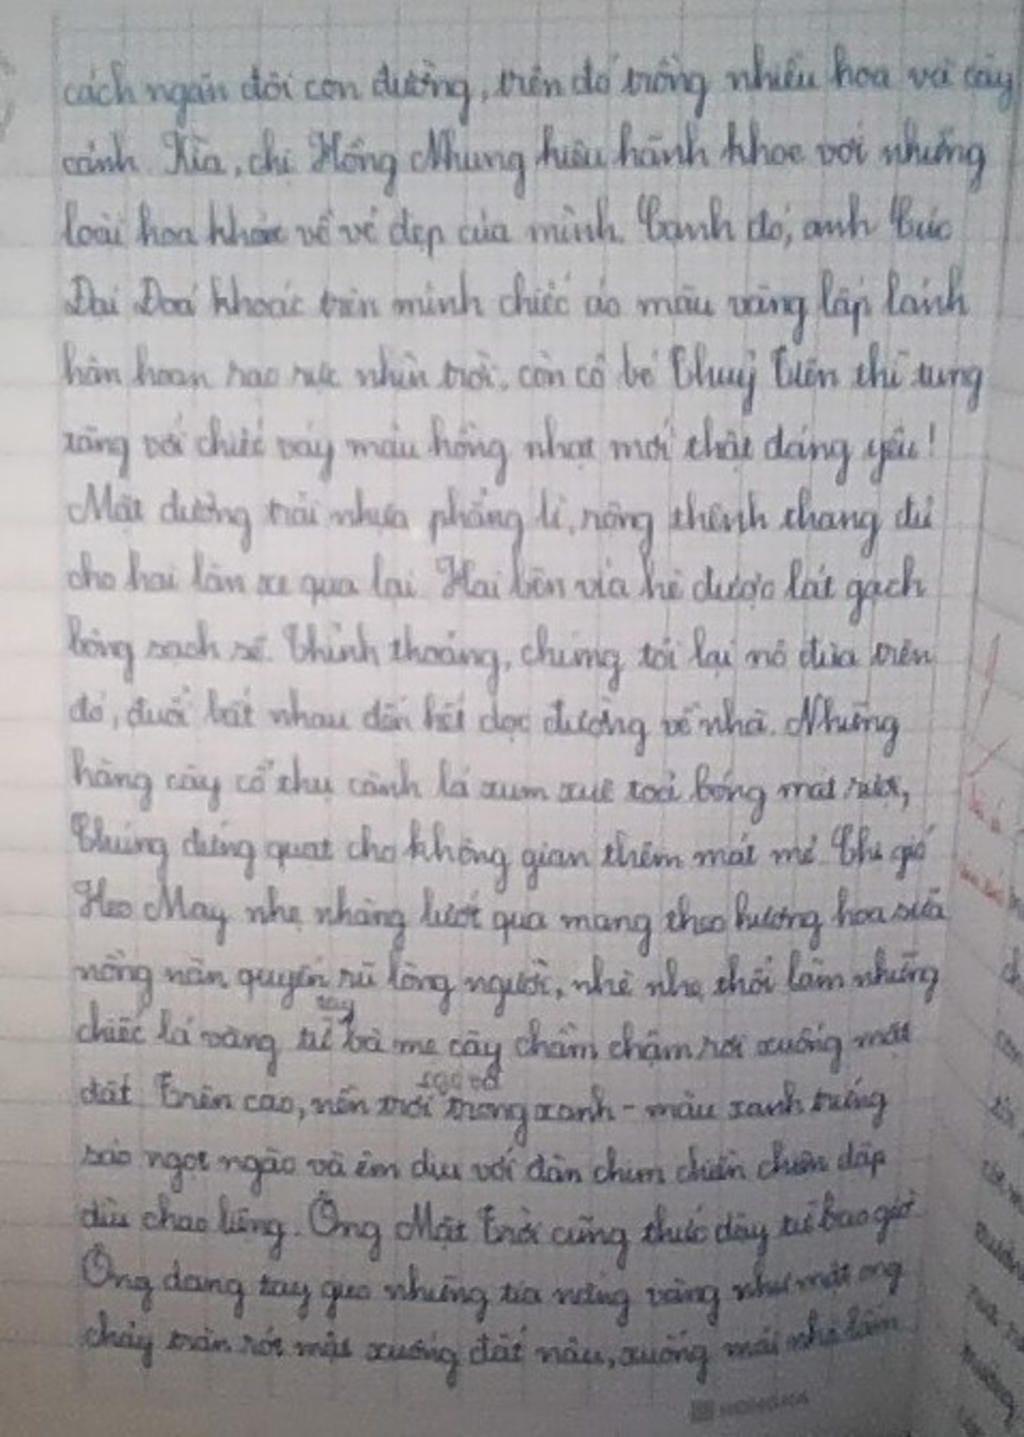 cách ngăn đôi con đường, trên đó trồng nhiều hoa và cây
cảnh. Kìa, chị Hồng Nhung kiêu hãnh khoe với những
loài hoa khác về vẻ đẹp của mình. Cạnh đó, anh Cúc
Đại Đoá khoác trên mình chiếc áo màu vàng lấp lánh
hân hoan rạo rực nhìn trời, còn cô bé Thuỷ Tiên thì tung
tăng với chiếc váy màu hồng nhạt mới thật đáng yêu!
Mặt đường trải nhựa phẳng lì, rộng thênh thang đủ
cho hai làn xe qua lại. Hai bên vỉa hè được lát gạch
bóng sạch sẽ. Thỉnh thoảng, chúng tôi lại nô đùa trên
đó, đuổi bắt nhau đến hết dọc đường về nhà. Những
hàng cây cổ thụ cành lá xum xuê toả bóng mát rượi,
Chúng đứng quạt cho không gian thêm mát mẻ. Chị gió
Heo May nhẹ nhàng lướt qua mang theo hương hoa sữa
nồng nàn quyến rũ lòng người, nhè nhẹ thổi làm những
chiếc lá vàng từ tay bà mẹ cây chầm chậm rơi xuống mặt
đất. Trên cao, nền trời trong xanh - màu xanh trứng
sáo ngọt ngào và êm dịu với đàn chim chiền chiện dập
dìu chao liệng. Ông Mặt Trời cũng thức dậy từ bao giờ.
Ông dang tay gieo những tia nắng vàng như mật ong
chảy tràn rót mật xuống đất nâu, xuống mái nhà lấm
HONGHA